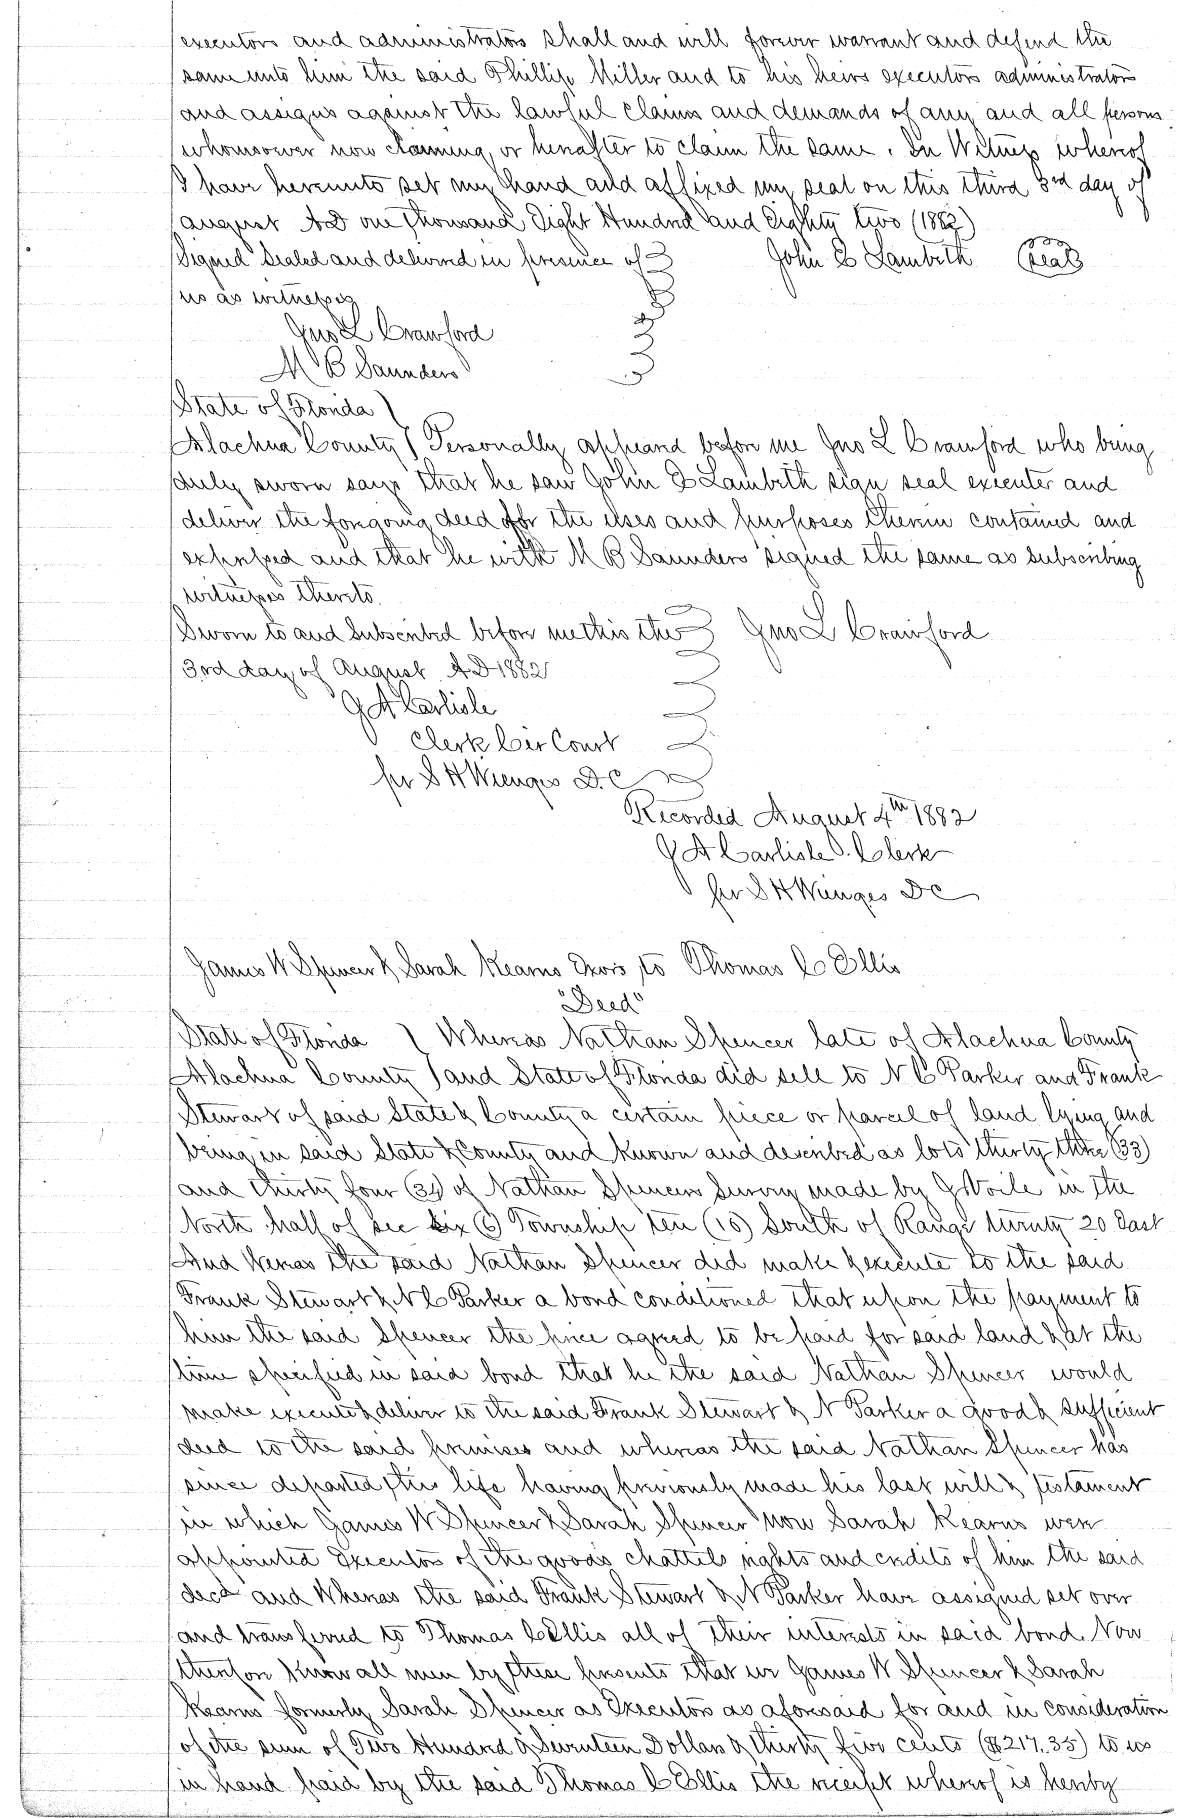 executors and administrators shall and will forever warrant and defend the
same unto him the said Phillip Miller and to his heirs executors administrators
and assigns against the lawful claims and demands of any and all persons
whomsoever now claiming or hereafter to claim the same. In Witness whereof
I have hereunto set my hand and affixed my seal on this third 3rd day of
august AD one thousand Eight Hundred and Eighty two (1882)
Signed Sealed and delivered in presence of John E Lambeth (Seal)
us as witnesses
Jno L Crawford
M B Saunders
State of Florida
Alachua County Personally appeared before me Jno L Crawford who being
duly sworn says that he saw John E Lambeth sign seal executer and
deliver the foregoing deed for the uses and purposes therein contained and
expressed and that he with M B Saunders signed the same as subscribing
witnesses thereto.
Sworn to and Subscribed before me this the Jno L Crawford
3rd day of August A D 1882
J A Carlisle
Clerk Cir Court
per S H Wienges D.C
Recorded August 4th 1882
J A Carlisle Clerk
per S H Wienges DC
James W Spencer & Sarah Kearns Exors to Thomas C Ellis
"Deed"
State of Florida Whereas Nathan Spencer late of Alachua County
Alachua County and State of Florida did sell to N C Parker and Frank
Stewart of said State & County a certain piece or parcel of land lying and
being in said State & County and known and described as lots thirty three (33)
and thirty four (34) of Nathan Spencers Survey made by J Voile in the
North half of sec six (6) Township ten (10) South of Range twenty 20 East
And Weras the said Nathan Spencer did make & execute to the said
Frank Stewart & N C Parker a bond conditioned that upon the payment to
him the said Spencer the price agreed to be paid for said land & at the
time specified in said bond that he the said Nathan Spencer would
make execute & deliver to the said Frank Stewart & N Parker a good & sufficient
deed to the said premises and whereas the said Nathan Spencer has
since departed this life having previously made his last will & testament
in which James W Spencer & Sarah Spencer now Sarah Kearns were
appointed Executors of the goods chattels rights and credits of him the said
decd and Whereas the said Frank Stewart & N Parker have assigned set over
and transferred to Thomas C Ellis all of their interests in said bond. Now
therefore Know all men by these presents that we James W Spencer & Sarah
Kearns formerly Sarah Spencer as Executors as aforesaid for and in consideration
of the sum of Two Hundred & Seventeen Dollars & thirty five cents ($217.35) to us
in hand paid by the said Thomas C Ellis the receipt whereof is hereby